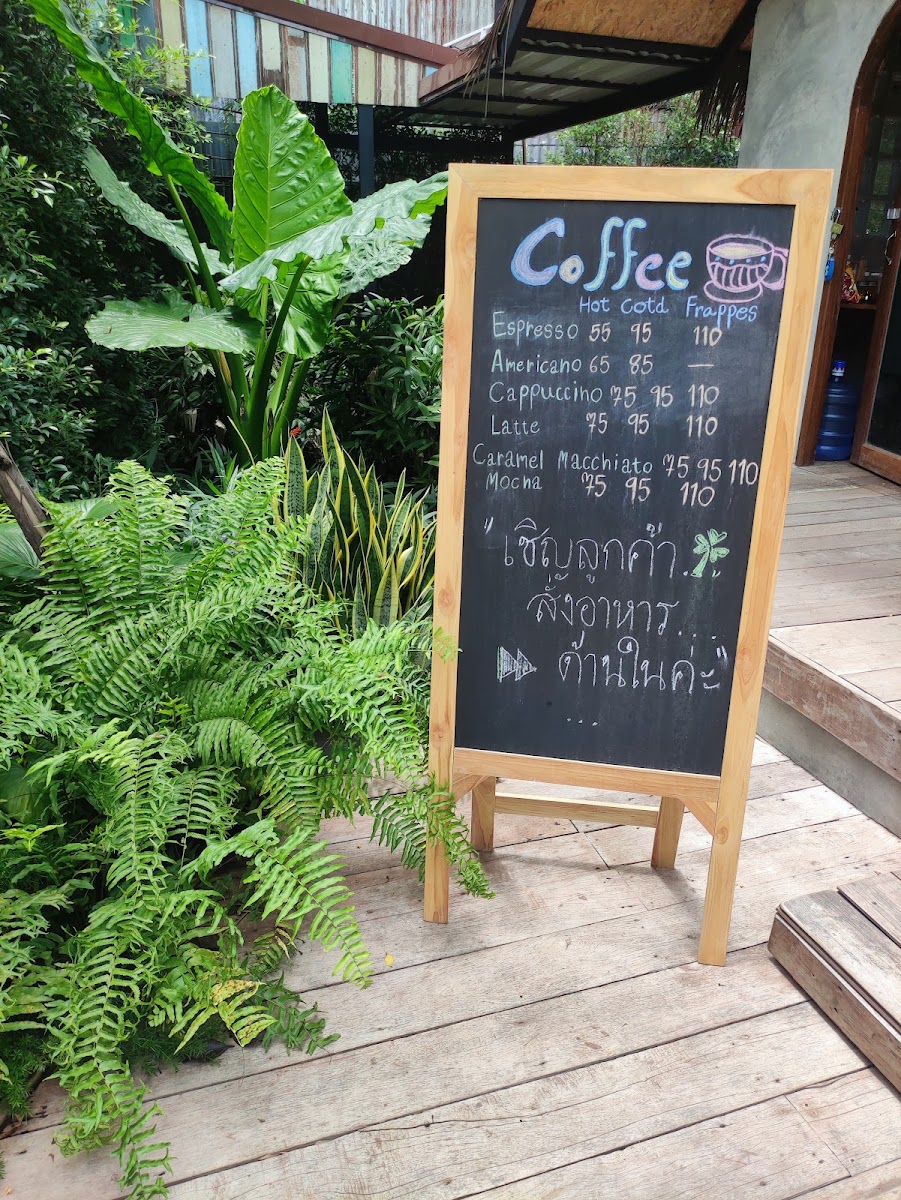 Coffee
Hot Cold Frappes
Espresso 55 95 110
Americano 65 85 —
Cappuccino 75 95 110
Latte 75 95 110
Caramel Macchiato 75 95 110
Mocha 75 95 110
"เชิญลูกค้า...
สั่งอาหาร....
ด้านในค่ะ"
...